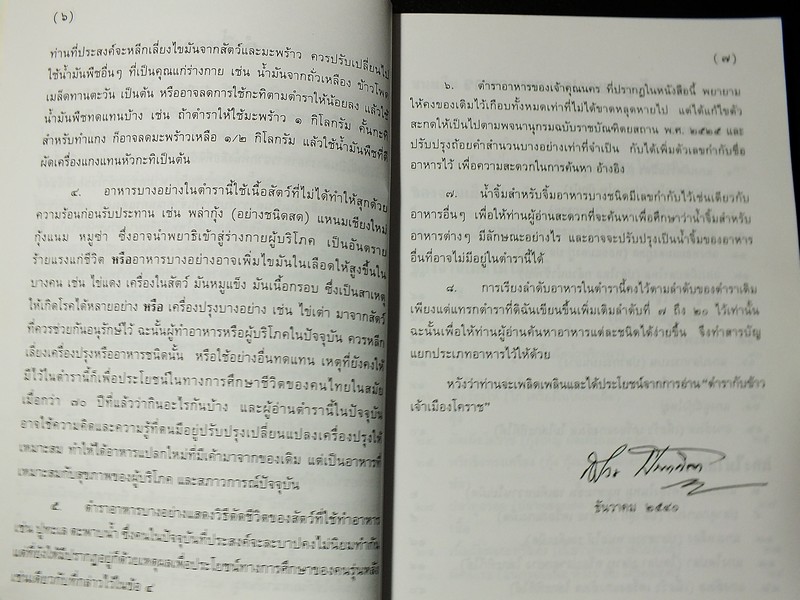 (๖)
ท่านที่ประสงค์จะหลีกเลี่ยงไขมันจากสัตว์และมะพร้าว ควรปรับเปลี่ยนไป
ใช้น้ำมันพืชอื่นๆ ที่เป็นคุณแก่ร่างกาย เช่น น้ำมันจากถั่วเหลือง ข้าวโพด
เมล็ดทานตะวัน เป็นต้น หรืออาจลดการใช้กะทิตามตำราให้น้อยลง แล้วใช้
น้ำมันพืชทดแทนบ้าง เช่น ถ้าตำราให้ใช้มะพร้าว ๑ กิโลกรัม คั้นกะทิ
สำหรับทำแกง ก็อาจลดมะพร้าวเหลือ ๑/๒ กิโลกรัม แล้วใช้น้ำมันพืชที่ดี
ผัดเครื่องแกงแทนหัวกะทิเป็นต้น
๔. อาหารบางอย่างในตำรานี้ใช้เนื้อสัตว์ที่ไม่ได้ทำให้สุกด้วย
ความร้อนก่อนรับประทาน เช่น พล่ากุ้ง (อย่างชนิดสด) แหนมเชียงใหม่
กุ้งแนม หมูซ่า ซึ่งอาจนำพยาธิเข้าสู่ร่างกายผู้บริโภค เป็นอันตราย
ร้ายแรงแก่ชีวิต หรืออาหารบางอย่างอาจเพิ่มไขมันในเลือดให้สูงขึ้นใน
บางคน เช่น ไข่แดง เครื่องในสัตว์ มันหมูแข็ง มันเนื้อกรอบ ซึ่งเป็นสาเหตุ
ให้เกิดโรคได้หลายอย่าง หรือ เครื่องปรุงบางอย่าง เช่น ไข่เต่า มาจากสัตว์
ที่ควรช่วยกันอนุรักษ์ไว้ ฉะนั้นผู้ทำอาหารหรือผู้บริโภคในปัจจุบัน ควรหลีก
เลี่ยงเครื่องปรุงหรืออาหารชนิดนั้น หรือใช้อย่างอื่นทดแทน เหตุที่ยังคงให้
มีไว้ในตำรานี้ก็เพื่อประโยชน์ในทางการศึกษาชีวิตของคนไทยในสมัย
เมื่อกว่า ๗๐ ปีที่แล้วว่ากินอะไรกันบ้าง และผู้อ่านตำรานี้ในปัจจุบัน
อาจใช้ความคิดและความรู้ที่ตนมีอยู่ปรับปรุงเปลี่ยนแปลงเครื่องปรุงให้
เหมาะสม ทำให้ได้อาหารแปลกใหม่ที่มีเค้ามาจากของเดิม แต่เป็นอาหารที่
เหมาะสมกับสุขภาพของผู้บริโภค และสภาวการณ์ปัจจุบัน
๕. ตำราอาหารบางอย่างแสดงวิธีตัดชีวิตของสัตว์ที่ใช้ทำอาหาร
เช่น ปูทะเล ตะพาบน้ำ ซึ่งคนในปัจจุบันที่ประสงค์จะละบาปคงไม่นิยมทำกัน
แต่ที่ยังให้มีปรากฏอยู่ก็ด้วยเหตุผลเพื่อประโยชน์ทางการศึกษาของคนรุ่นหลัง
เช่นเดียวกับที่กล่าวไว้ในข้อ ๔
(๗)
๖. ตำราอาหารของเจ้าคุณนคร ที่ปรากฏในหนังสือนี้ พยายาม
ให้คงของเดิมไว้เกือบทั้งหมดเท่าที่ไม่ได้ขาดหลุดหายไป แต่ได้แก้ไขตัว
สะกดให้เป็นไปตามพจนานุกรมฉบับราชบัณฑิตยสถาน พ.ศ. ๒๕๒๕ และ
ปรับปรุงถ้อยคำสำนวนบางอย่างเท่าที่จำเป็น กับได้เพิ่มตัวเลขกำกับชื่อ
อาหารไว้ เพื่อความสะดวกในการค้นหา อ้างอิง
๗. น้ำจิ้มสำหรับจิ้มอาหารบางชนิดมีเลขกำกับไว้เช่นเดียวกับ
อาหารอื่นๆ เพื่อให้ท่านผู้อ่านสะดวกที่จะค้นหาเพื่อศึกษาว่าน้ำจิ้มสำหรับ
อาหารต่างๆ มีลักษณะอย่างไร และอาจจะปรับปรุงเป็นน้ำจิ้มของอาหาร
อื่นที่อาจไม่มีอยู่ในตำรานี้ได้
๘. การเรียงลำดับอาหารในตำรานี้คงไว้ตามลำดับของตำราเดิม
เพียงแต่แทรกตำราที่ดิฉันเขียนขึ้นเพิ่มเติมลำดับที่ ๗ ถึง ๒๐ ไว้เท่านั้น
ฉะนั้นเพื่อให้ท่านผู้อ่านค้นหาอาหารแต่ละชนิดได้ง่ายขึ้น จึงทำสารบัญ
แยกประเภทอาหารไว้ให้ด้วย
หวังว่าท่านจะเพลิดเพลินและได้ประโยชน์จากการอ่าน “ตำรากับข้าว
เจ้าเมืองโคราช”
ธันวาคม ๒๕๔๐